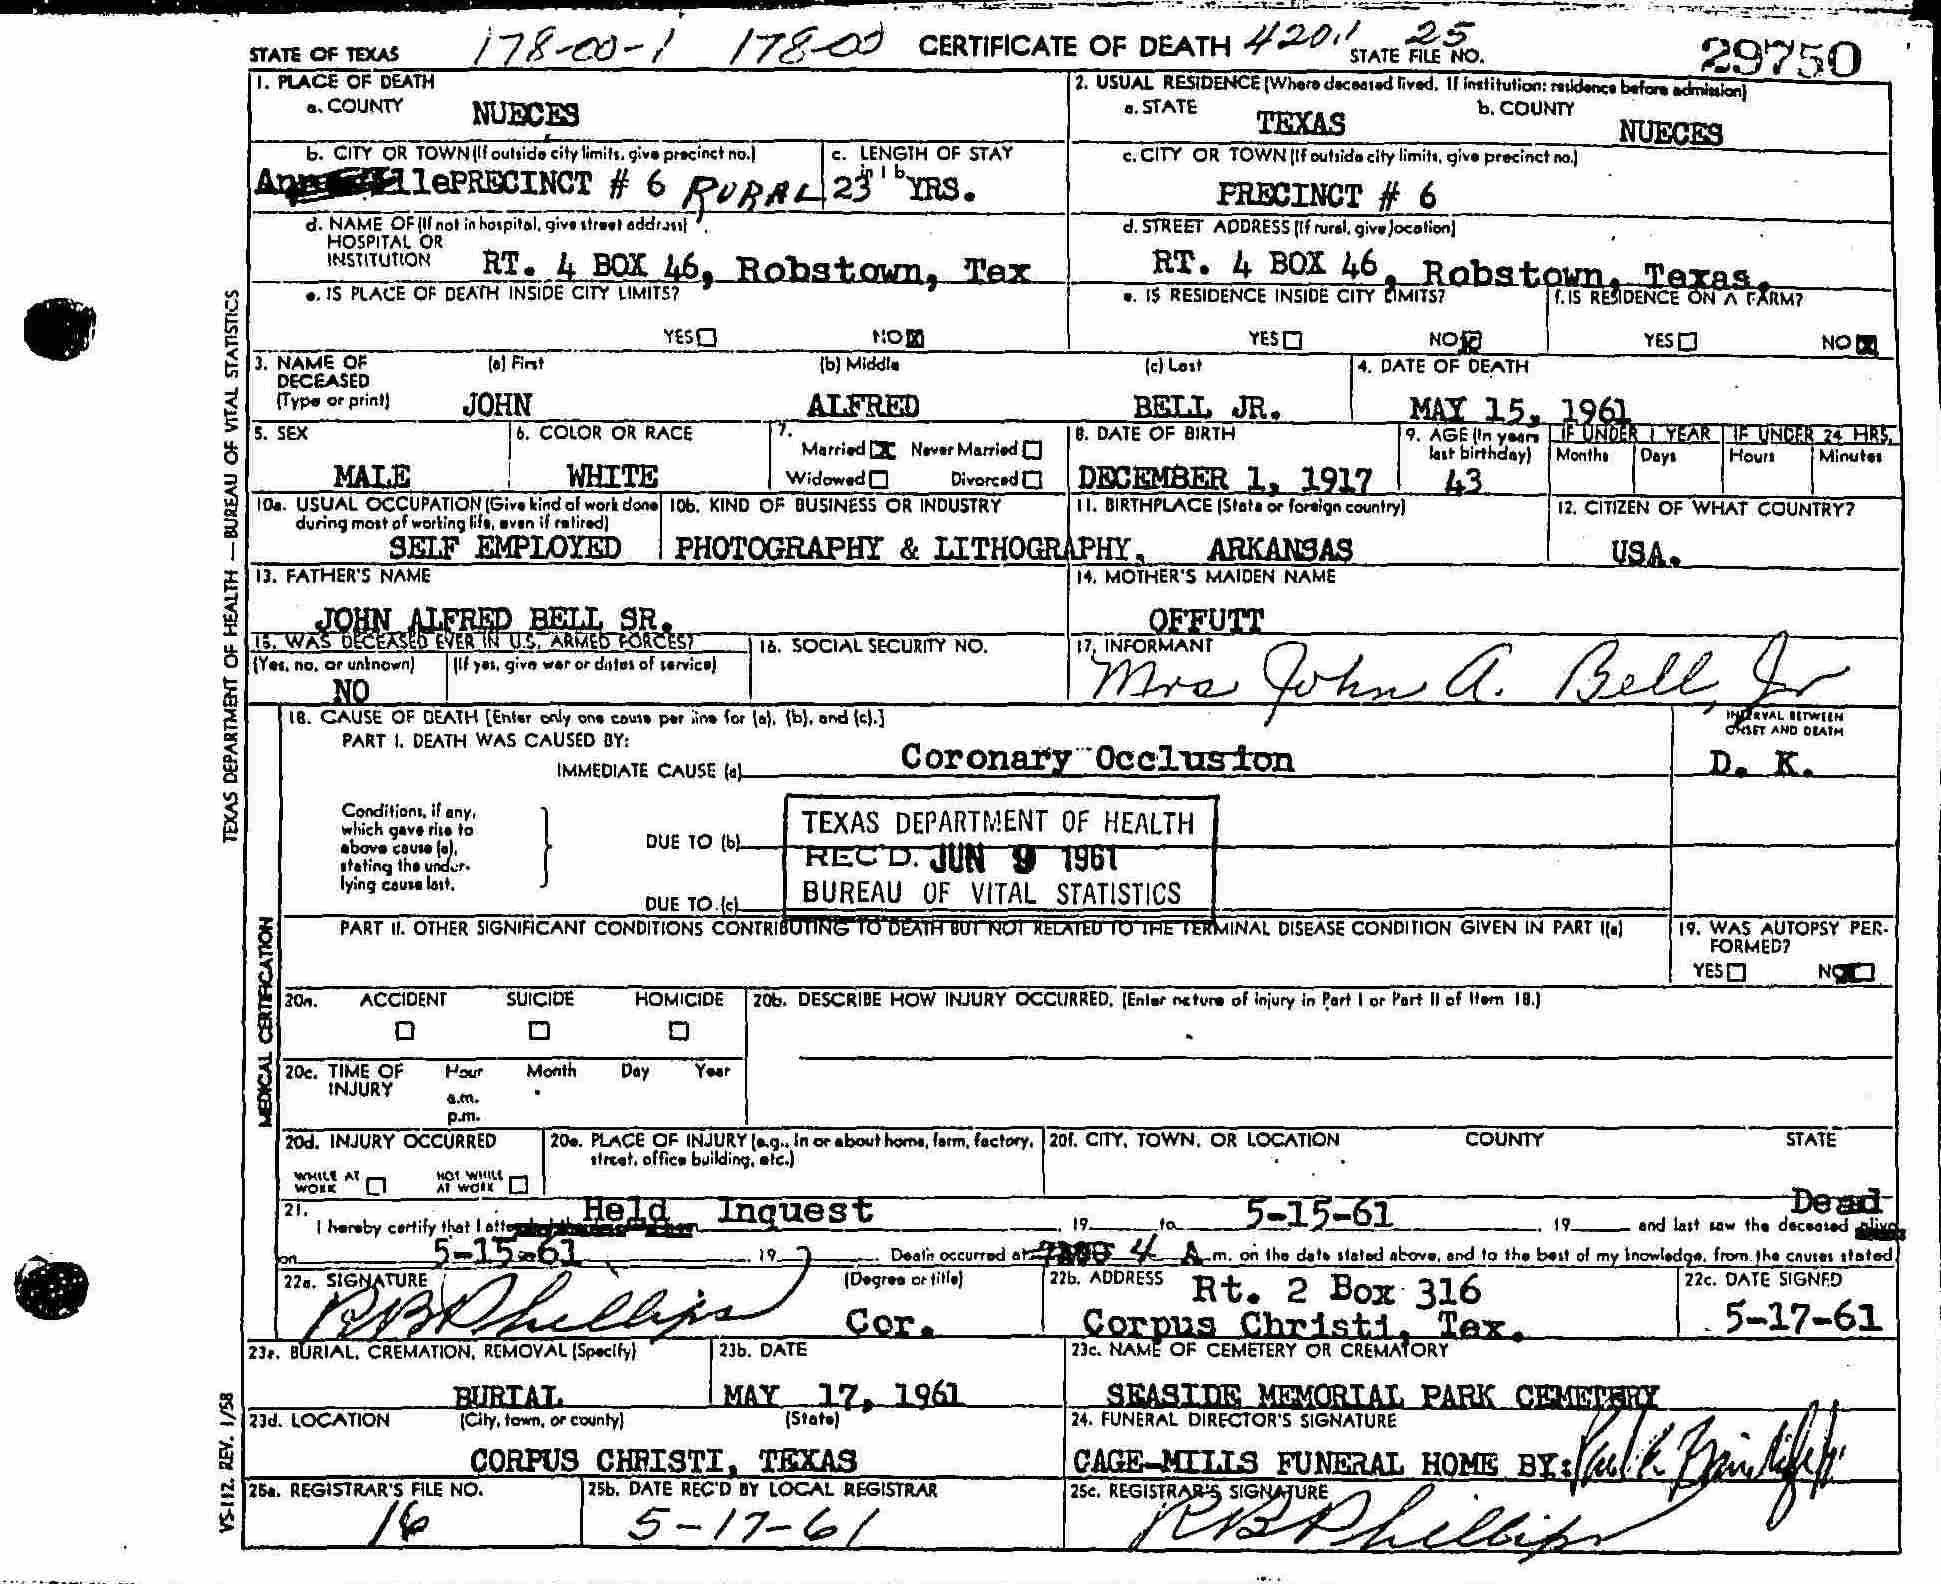 STATE OF TEXAS 178-00-1 178-00 CERTIFICATE OF DEATH 420.1 25 STATE FILE NO. 29750
1. PLACE OF DEATH
a. COUNTY NUECES
2. USUAL RESIDENCE (Where deceased lived. If institution: residence before admission)
a. STATE TEXAS b. COUNTY NUECES
b. CITY OR TOWN (If outside city limits, give precinct no.)
PRECINCT # 6 RURAL
c. LENGTH OF STAY in 1b
23 YRS.
c. CITY OR TOWN (If outside city limits, give precinct no.)
PRECINCT # 6
d. NAME OF (If not in hospital, give street address)
HOSPITAL OR
INSTITUTION RT. 4 BOX 46, Robstown, Tex
d. STREET ADDRESS (If rural, give location)
RT. 4 BOX 46, Robstown, Texas.
e. IS PLACE OF DEATH INSIDE CITY LIMITS?
YES NO
e. IS RESIDENCE INSIDE CITY LIMITS?
YES NO
f. IS RESIDENCE ON A FARM?
YES NO
3. NAME OF
DECEASED
(Type or print)
(a) First (b) Middle (c) Last
JOHN ALFRED BELL JR.
4. DATE OF DEATH
MAY 15, 1961
5. SEX
MALE
6. COLOR OR RACE
WHITE
7.
Married Never Married
Widowed Divorced
8. DATE OF BIRTH
DECEMBER 1, 1917
9. AGE (In years
last birthday)
43
IF UNDER 1 YEAR IF UNDER 24 HRS.
Months Days Hours Minutes
10a. USUAL OCCUPATION (Give kind of work done
during most of working life, even if retired)
SELF EMPLOYED
10b. KIND OF BUSINESS OR INDUSTRY
PHOTOGRAPHY & LITHOGRAPHY,
11. BIRTHPLACE (State or foreign country)
ARKANSAS
12. CITIZEN OF WHAT COUNTRY?
USA.
13. FATHER'S NAME
JOHN ALFRED BELL SR.
14. MOTHER'S MAIDEN NAME
OFFUTT
15. WAS DECEASED EVER IN U.S. ARMED FORCES?
(Yes, no, or unknown) (If yes, give war or dates of service)
NO
16. SOCIAL SECURITY NO.
17. INFORMANT
Mrs John A. Bell, Jr
18. CAUSE OF DEATH [Enter only one cause per line for (a), (b), and (c).]
PART I. DEATH WAS CAUSED BY:
IMMEDIATE CAUSE (a) Coronary Occlusion
INTERVAL BETWEEN
ONSET AND DEATH
D. K.
Conditions, if any,
which gave rise to
above cause (a),
stating the under-
lying cause last.
DUE TO (b)
DUE TO (c)
TEXAS DEPARTMENT OF HEALTH
REC'D. JUN 9 1961
BUREAU OF VITAL STATISTICS
PART II. OTHER SIGNIFICANT CONDITIONS CONTRIBUTING TO DEATH BUT NOT RELATED TO THE TERMINAL DISEASE CONDITION GIVEN IN PART I(a)
19. WAS AUTOPSY PER-
FORMED?
YES NO
20a. ACCIDENT SUICIDE HOMICIDE
20b. DESCRIBE HOW INJURY OCCURRED. (Enter nature of injury in Part I or Part II of Item 18.)
20c. TIME OF
INJURY
Hour Month Day Year
a.m.
p.m.
20d. INJURY OCCURRED
WHILE AT
WORK
NOT WHILE
AT WORK
20e. PLACE OF INJURY (e.g., in or about home, farm, factory,
street, office building, etc.)
20f. CITY, TOWN, OR LOCATION COUNTY STATE
21. Held Inquest 5-15-61 Dead
I hereby certify that I 19 to 19 and last saw the deceased alive
on 5-15-61 19 Death occurred at 4 A m. on the date stated above, and to the best of my knowledge, from the causes stated
22a. SIGNATURE (Degree or title)
R B Phillips Cor.
22b. ADDRESS Rt. 2 Box 316
Corpus Christi, Tex.
22c. DATE SIGNED
5-17-61
23a. BURIAL, CREMATION, REMOVAL (Specify)
BURIAL
23b. DATE
MAY 17, 1961
23c. NAME OF CEMETERY OR CREMATORY
SEASIDE MEMORIAL PARK CEMETERY
23d. LOCATION (City, town, or county) (State)
CORPUS CHRISTI, TEXAS
24. FUNERAL DIRECTOR'S SIGNATURE
CAGE-MILLS FUNERAL HOME BY:
25a. REGISTRAR'S FILE NO.
16
25b. DATE REC'D BY LOCAL REGISTRAR
5-17-61
25c. REGISTRAR'S SIGNATURE
R B Phillips
TEXAS DEPARTMENT OF HEALTH — BUREAU OF VITAL STATISTICS
MEDICAL CERTIFICATION
VS-112. REV. 1/58